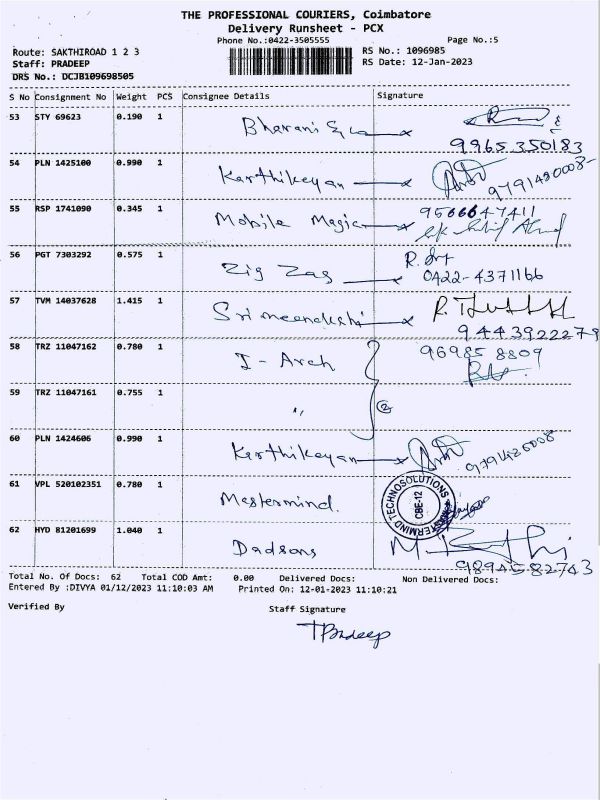 THE PROFESSIONAL COURIERS, Coimbatore
Delivery Runsheet - PCX
Phone No.:0422-3505555
Page No.:5
Route: SAKTHIROAD 1 2 3
RS No.: 1096985
Staff: PRADEEP
RS Date: 12-Jan-2023
DRS No.: DCJB109698505
S No Consignment No Weight PCS Consignee Details Signature
53 STY 69623 0.190 1 Bharani
9965350183
54 PLN 1425100 0.990 1 Karthikeyan
55 RSP 1741090 0.345 1 Mobile Magic 9566647411
56 PGT 7303292 0.575 1 Zig Zag
0422-4371166
57 TVM 14037628 1.415 1 Srimeenakshi
9443922279
58 TRZ 11047162 0.780 1 I-Arch 969858809
59 TRZ 11047161 0.755 1 "
2
60 PLN 1424606 0.990 1 Karthikeyan
61 VPL 520102351 0.780 1 Mastermind.
MASTERMIND TECHNOSOLUTIONS
CBE-12
62 HYD 81201699 1.040 1 Dadsons
9894582743
Total No. Of Docs: 62 Total COD Amt: 0.00 Delivered Docs: Non Delivered Docs:
Entered By :DIVYA 01/12/2023 11:10:03 AM Printed On: 12-01-2023 11:10:21
Verified By Staff Signature
TPradeep